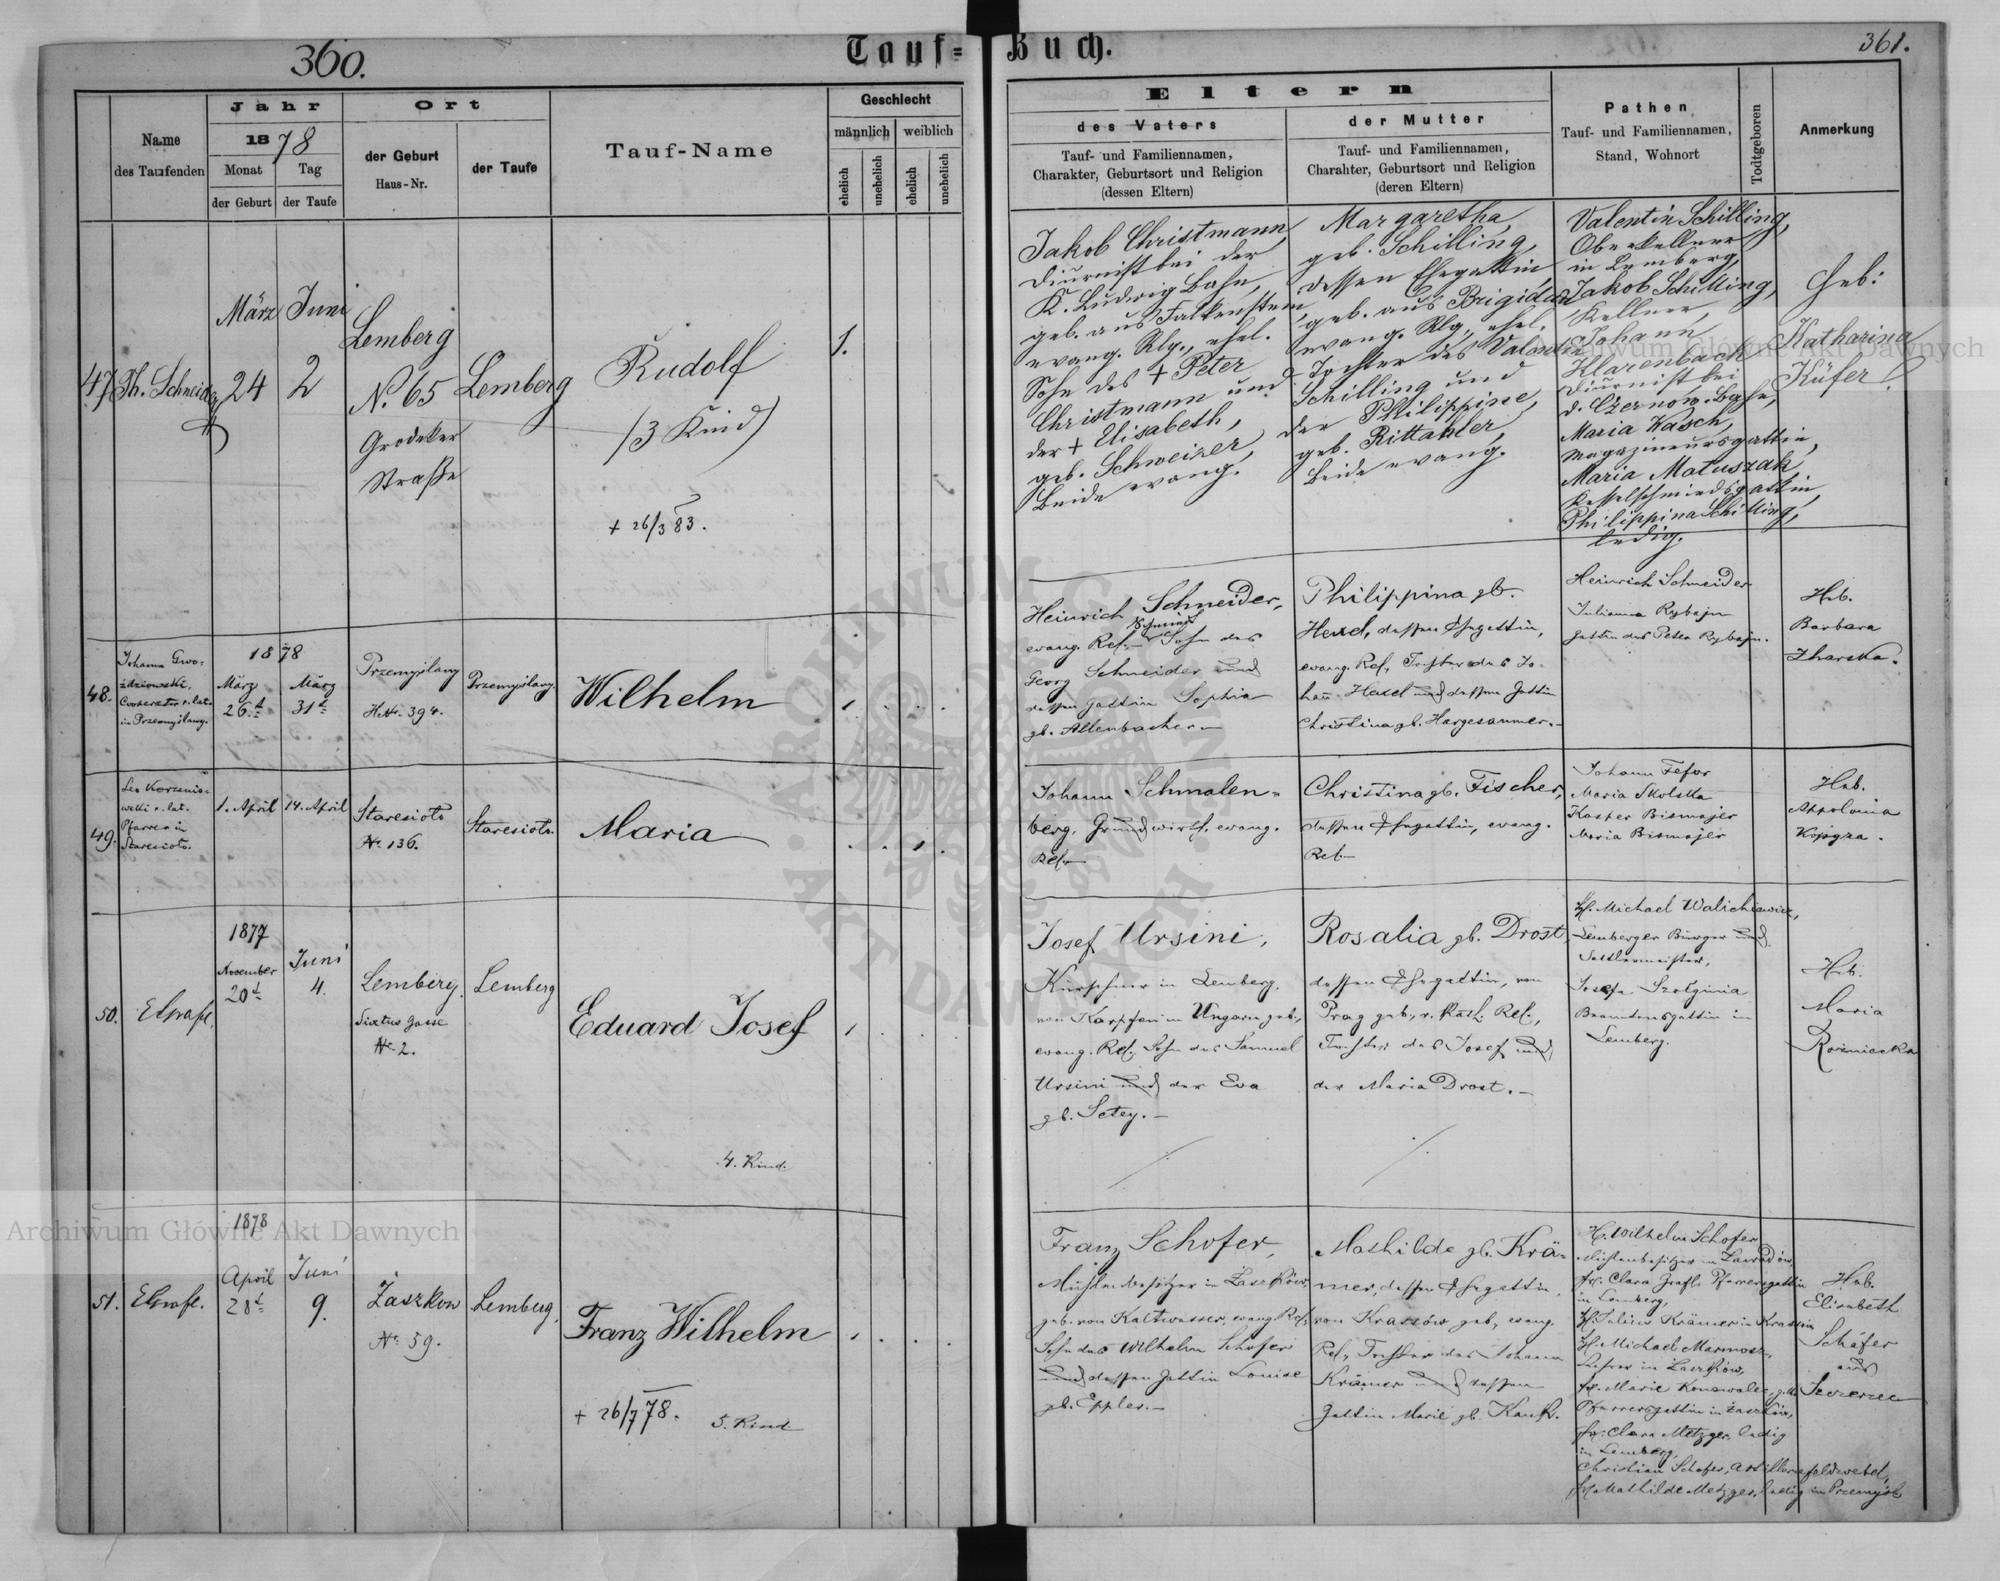 360.
Tauf-
Buch.
361.
Name
des Taufenden
Jahr
1878
Monat
Tag
der Geburt
der Taufe
Ort
der Geburt
Haus-Nr.
der Taufe
Tauf-Name
Geschlecht
männlich
weiblich
ehelich
unehelich
ehelich
unehelich
Eltern
des Vaters
Tauf- und Familiennamen,
Charakter, Geburtsort und Religion
(dessen Eltern)
der Mutter
Tauf- und Familiennamen,
Charahter, Geburtsort und Religion
(deren Eltern)
Pathen
Tauf- und Familiennamen,
Stand, Wohnort
Todtgeboren
Anmerkung
47
Th. Schneider
März
24
Juni
2
Lemberg
N. 65
Grodeker
Straße
Lemberg
Rudolf
(3 Kind)
+ 26/3 83.
1.
Jakob Christmann,
Diurnist bei der
K. Ludwig Bahn,
geb. aus Falkenstein,
evang. Rlg., ehel.
Sohn des + Peter
Christmann und
der + Elisabeth,
geb. Schweizer,
Beide evang.
Margaretha,
geb. Schilling,
dessen Ehegattin,
geb. aus Brigidau
evang. Rlg., ehel.
Tochter des Valentin
Schilling und
der Philippine,
geb. Rittahler,
Beide evang.
Valentin Schilling,
Oberkellner
in Lemberg,
Jakob Schilling,
Kellner,
Johann
Klarenbach
Diurnist bei
d. Czernow. Bahn,
Maria Kasch,
Magazineursgattin,
Maria Matuszak,
Kesselschmiedsgattin,
Philippina Schilling,
ledig.
Geb:
Katharina
Küfer.
48.
Johann Gwo-
ździowski,
Cooperator r. lat.
in Przemyślany.
1878
März
26.t
März
31t
Przemyślany
H.Nr. 394.
Przemyślany.
Wilhelm
1
Heinrich Schneider,
evang. Rel. Sohn des
Georg Schneider und
dessen Gattin Sophia
gb. Altenbacher.
Philippina gb.
dessen Ehegattin,
evang. Rel., Tochter des Jo-
hann und dessen Gattin
Christina gb. Hargesaumer.
Heinrich Schneider
Julianna Rybajn
Gattin des Peter Rybajn.
Heb.
Barbara
Zharska.
49.
Leo Korzenio-
wski r. lat.
Pfarrer in
Staresioło.
1. April
14. April
Staresioło
Nr. 136.
Staresioło.
Maria
1
Johann Schmalen-
berg, Grundwirth, evang.
Rel.
Christina gb. Fischer,
dessen Ehegattin, evang.
Rel.
Johann Fefor
Maria Skolska
Kasper Bismajer
Maria Bismajer
Heb.
Appolonia
50.
1877
November
20t
Juni
4.
Lemberg.
Sixtus Gasse
Nr. 2.
Lemberg
Eduard Josef
4. Kind.
1
Josef Ursini,
Kürschner in Lemberg,
von Karpfen in Ungarn geb.,
evang. Rel., Sohn des Samuel
Ursini und der Eva
gb. Setey.
Rosalia gb. Drost
dessen Ehegattin, von
Prag geb., r. kath. Rel.,
Tochter des Josef und
der Maria Drost.
H. Michael Walichiewicz,
Lemberger Bürger und
Sattlermeister,
Josefa Szolginia
Beamtensgattin in
Lemberg.
Heb.
Maria
Rozniecka
51.
1878
April
28t
Juni
9.
Zaszkow
Nr. 59.
Lemberg.
Franz Wilhelm
+ 26/7 78.
5. Kind
1
Franz Schofer,
Mühlenbesitzer in Zaszków,
geb. von Kaltwasser, evang. Rel.
Sohn des Wilhelm Schofer
und dessen Gattin Louise
gb. Eppler.
Mathilde gb. Krä-
mer, dessen Ehegattin,
von Krassów geb., evang.
Rel., Tochter des Johann
Krämer und dessen
Gattin Marie gb. Kauk.
H. Wilhelm Schofer
Fr. Clara Grafl Pfarrersgattin
in Lemberg,
H. Julius Krämer in Krassów
H. Michael Marmosz,
Lehrer in Zaszków,
Pfarrersgattin in Zaszków,
Fr. Clara Metzger, ledig
in Lemberg,
Christian Schofer, Artilleriefeldwebel,
Mathilde Metzger, ledig in Przemyśl
Heb.
Elisabeth
Schäfer
aus
Archiwum Główne Akt Dawnych
Archiwum Główne Akt Dawnych
ARCHIWUM GŁÓWNE AKT DAWNYCH